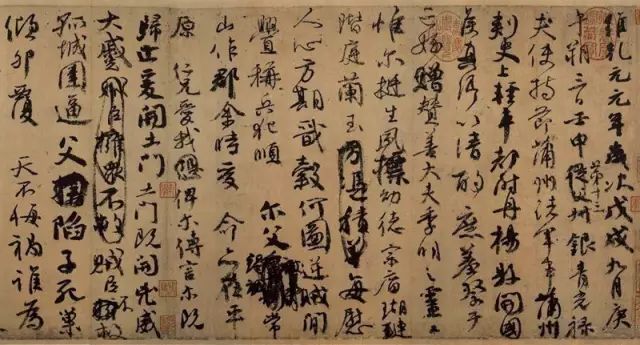 維乾元元年歲次戊戌九月庚
午朔三日壬申第十三從父銀青光祿
夫使持節蒲州諸軍事蒲州
刺史上輕車都尉丹楊縣開國
侯真卿以清酌庶羞祭于
亡姪贈贊善大夫季明之靈曰
惟爾挺生夙標幼德宗廟瑚璉
階庭蘭玉方憑積善每慰
人心方期戩穀何圖逆賊閒
釁稱兵犯順爾父竭誠常
山作郡余時受命亦在平
原仁兄愛我俾爾傳言爾既
歸止爰開土門土門既開凶威
大蹙賊臣擁衆不救賊臣不救
孤城圍逼父陷子死巢
傾卵覆天不悔禍誰為